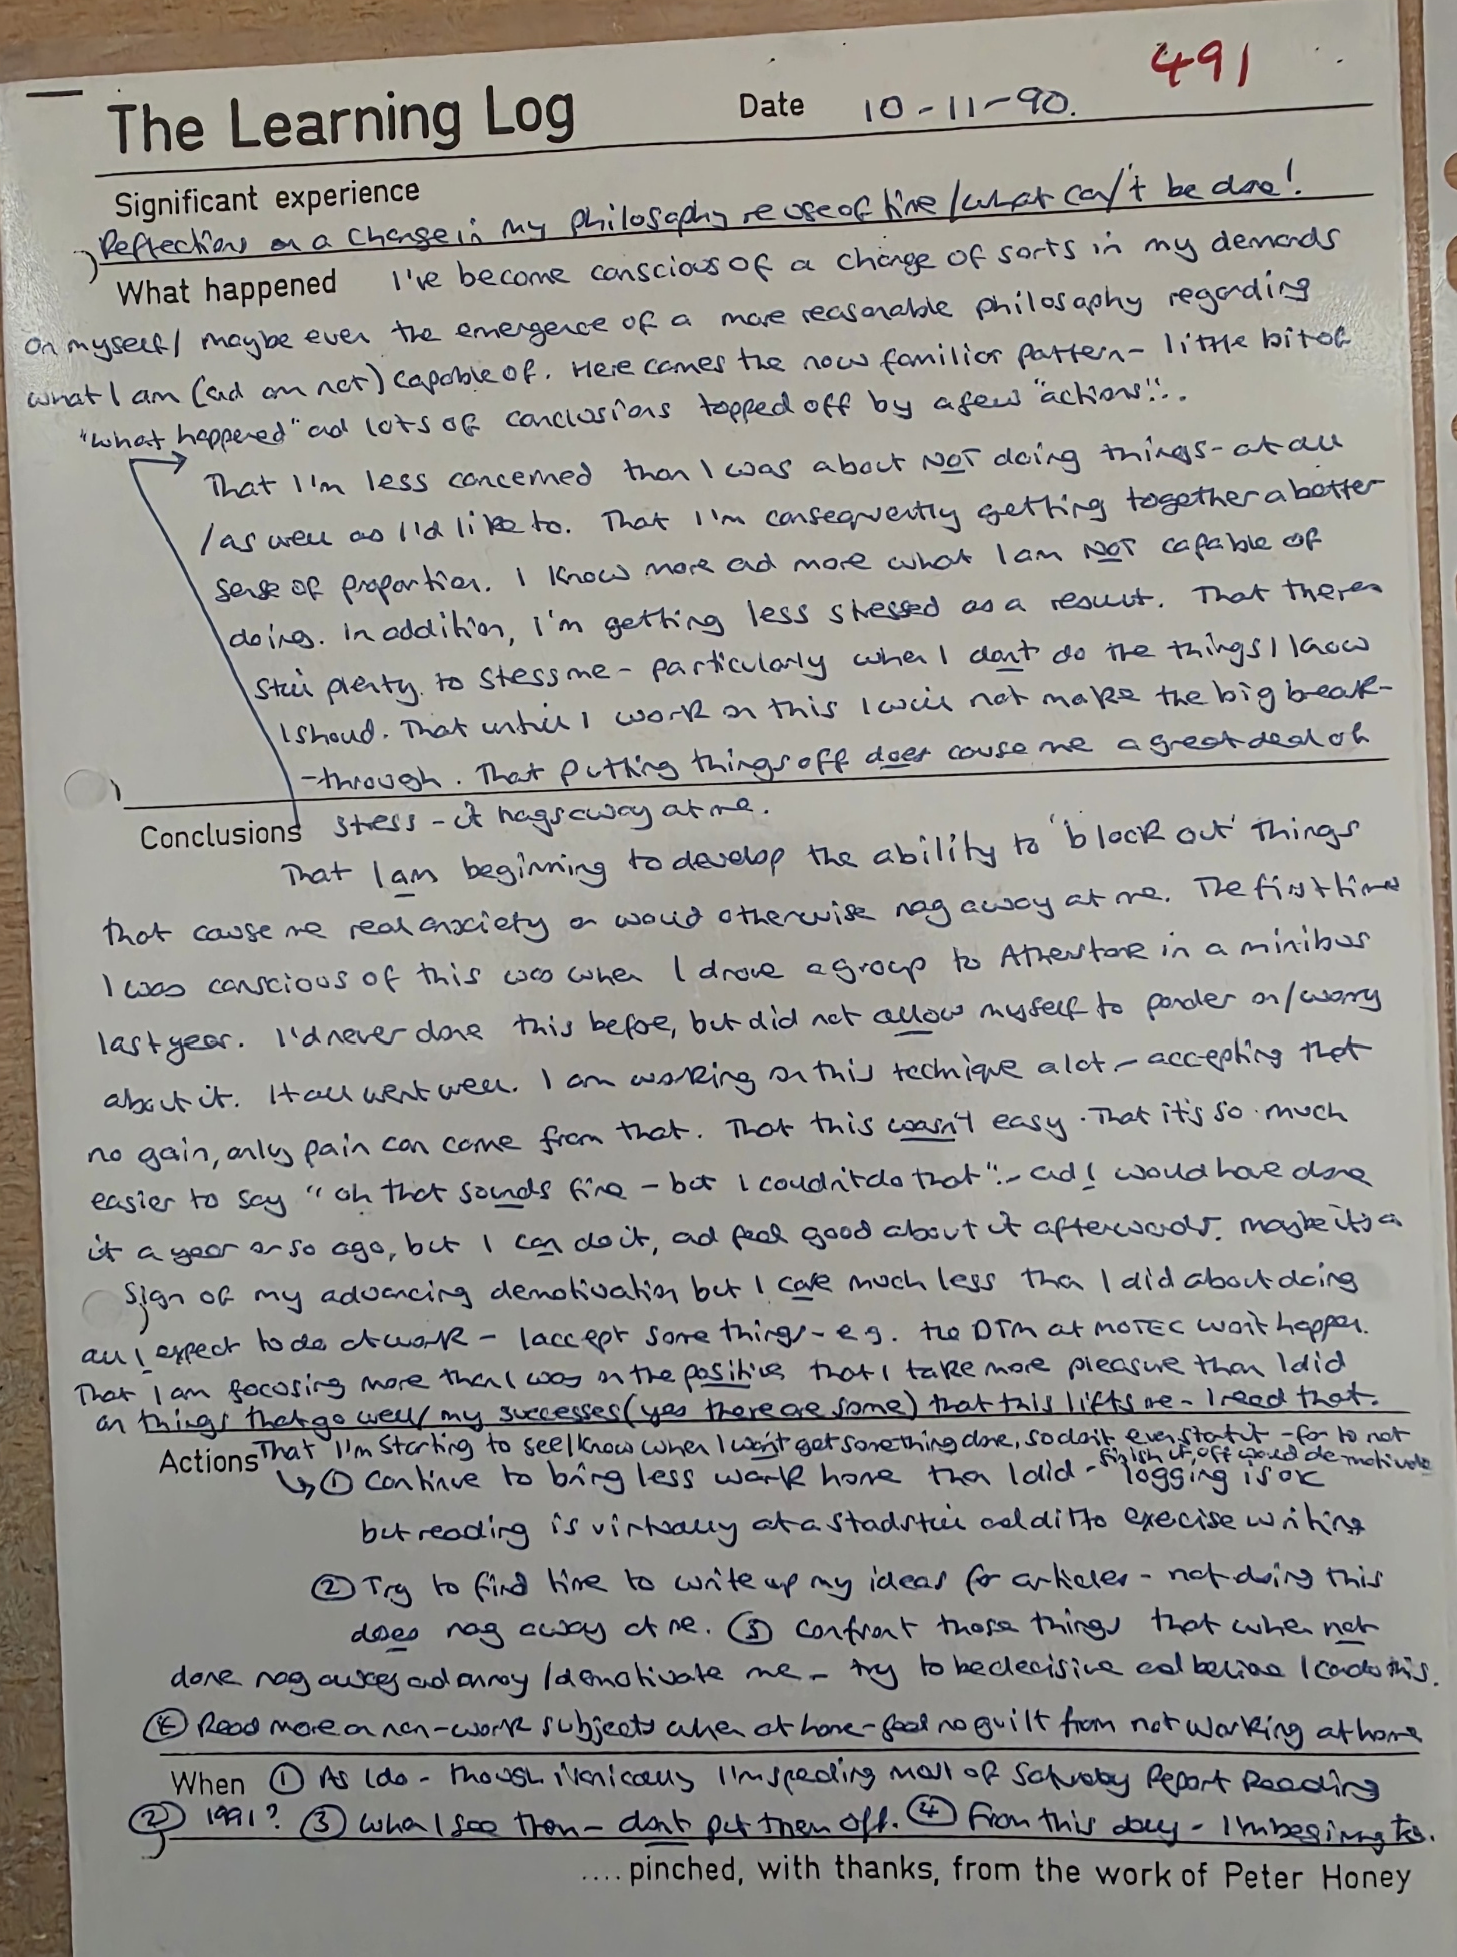 491
The Learning Log Date 10-11-90.
Significant experience
Reflections on a change in my philosophy re use of time/what can't be done!
What happened I've become conscious of a change of sorts in my demands
on myself/ maybe even the emergence of a more reasonable philosophy regarding
what I am (and am not) capable of. Here comes the now familiar pattern- little bit of
"what happened" and lots of conclusions topped off by a few "actions"...
That I'm less concerned than I was about NOT doing things - at all
/as well as I'd like to. That I'm consequently getting together a better
sense of proportion. I know more and more what I am NOT capable of
doing. In addition, I'm getting less stressed as a result. That there's
still plenty to stress me - particularly when I don't do the things I know
I shoud. That until I work on this I will not make the big break-
-through. That putting things off does cause me a great deal of
Conclusions stress - it nags away at me.
That I am beginning to develop the ability to 'block out' things
that cause me real anxiety or would otherwise nag away at me. The first time
I was conscious of this was when I drove a group to Atherstone in a minibus
last year. I'd never done this before, but did not allow myself to ponder on/worry
about it. It all went well. I am working on this technique a lot - accepting that
no gain, only pain can come from that. That this wasn't easy. That it's so much
easier to say "oh that sounds fine - but I couldn't do that" - and I would have done
it a year or so ago, but I can do it, and feel good about it afterwards. Maybe it's a
sign of my advancing demotivation but I care much less than I did about doing
all I expect to do at work - I accept some things - e.g. the DTM at MOTEC won't happen.
That I am focusing more than I was on the positive that I take more pleasure than I did
on things that go well/my successes (yes there are some) that this lifts me - I need that.
Actions That I'm starting to see/know when I won't get something done, so don't even start it - for to not
finish it off would demotivate
① Continue to bring less work home than I did - logging is OK
but reading is virtually at a standstill and ditto exercise writing
② Try to find time to write up my ideas for articles - not doing this
does nag away at me. ③ Confront those things that when not
done nag away and annoy/demotivate me - try to be decisive and believe I can do this.
④ Read more on non-work subjects when at home - feel no guilt from not working at home
When ① As I do - though ironically I'm spending most of Saturday Report Reading
② 1991? ③ When I see them - don't put them off. ④ From this day - I'm beginning to.
.... pinched, with thanks, from the work of Peter Honey